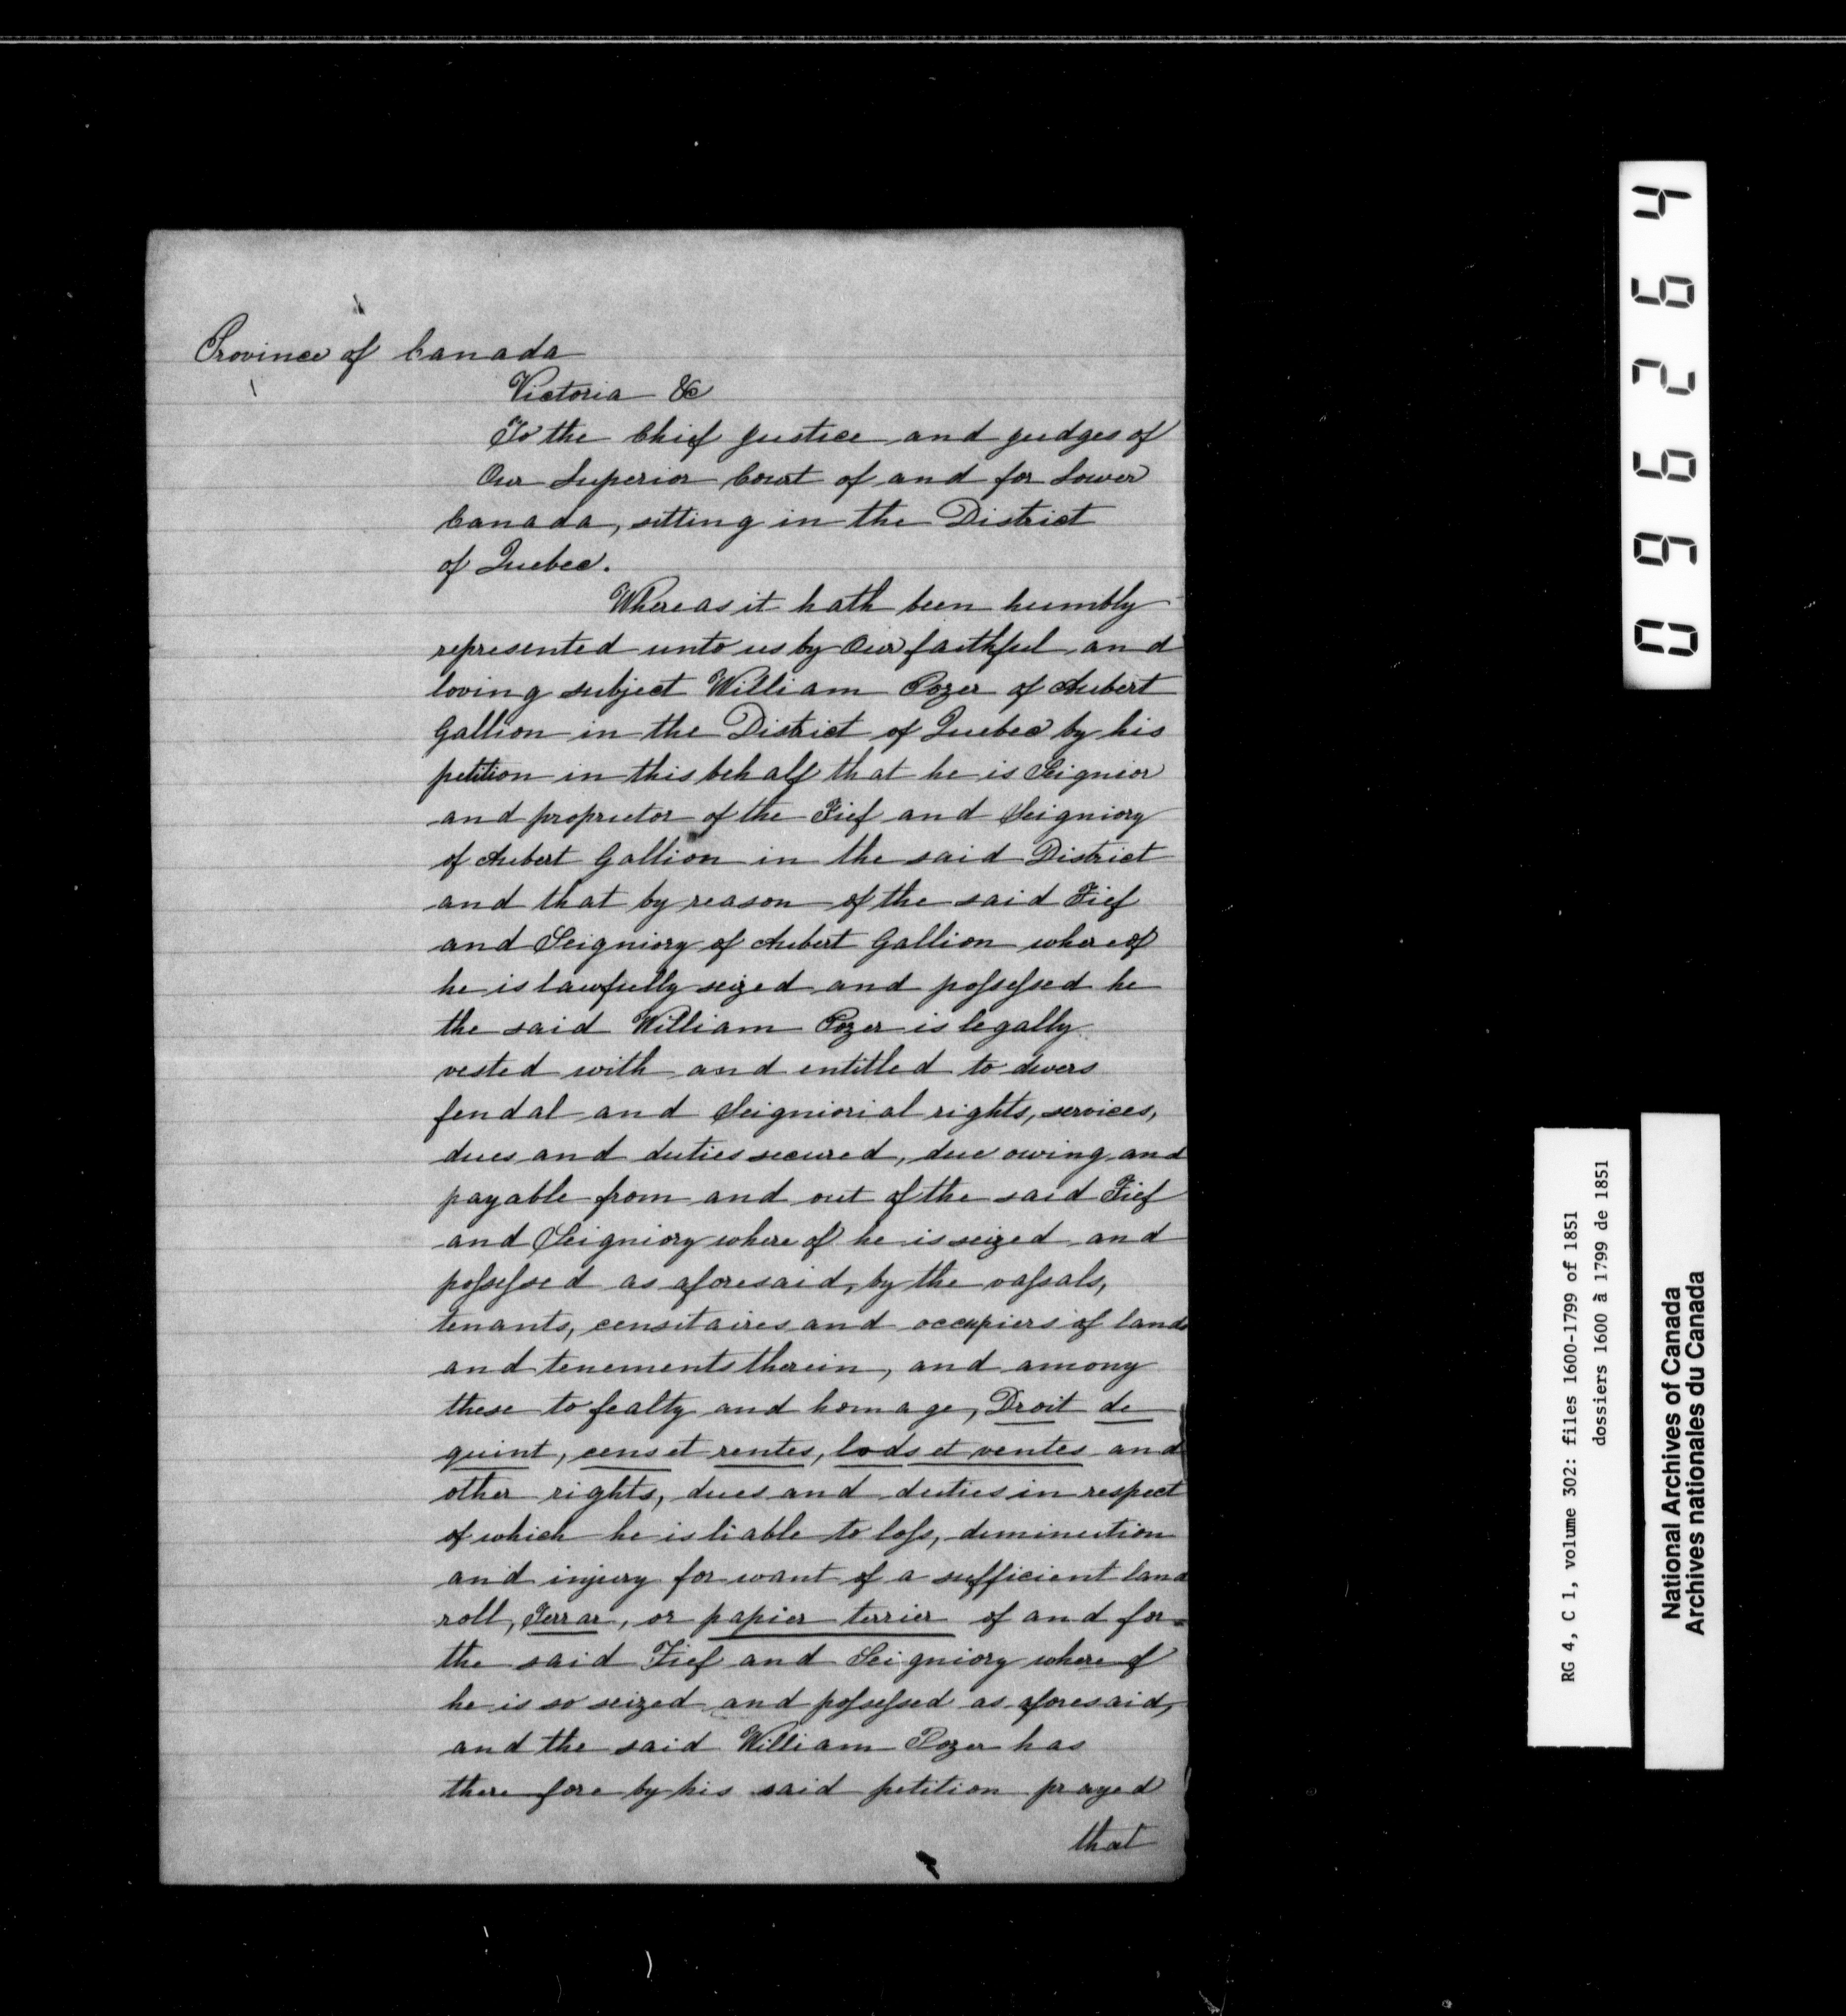 Province of Canada
Victoria &c
To the Chief Justice and Judges of
Our Superior Court of and for Lower
Canada, sitting in the District
of Quebec.
Whereas it hath been humbly
represented unto us by Our faithful and
loving subject William Pozer of Aubert
Gallion in the District of Quebec by his
petition in this behalf that he is Seignior
and proprietor of the Fief and Seigniory
of Aubert Gallion in the said District
and that by reason of the said Fief
and Seigniory of Aubert Gallion whereof
he is lawfully seized and poſseſsed he
the said William Pozer is legally
vested with and entitled to divers
feudal and Seigniorial rights, services,
dues and duties secured, due owing and
payable from and out of the said Fief
and Seigniory whereof he is seized and
poſseſsed as aforesaid, by the vaſsals,
tenants, censitaires and occupiers of lands
and tenements therein, and among
these to fealty and homage, Droit de
quint, cens et rentes, lods et ventes and
other rights, dues and duties in respect
of which he is liable to loſs, diminution
and injury for want of a sufficient land
roll, Terrar, or papier terrier of and for
the said Fief and Seigniory whereof
he is so seized and poſseſsed as aforesaid,
and the said William Pozer has
therefore by his said petition prayed
that
096264
RG 4, C 1, volume 302: files 1600-1799 of 1851
dossiers 1600 à 1799 de 1851
National Archives of Canada
Archives nationales du Canada